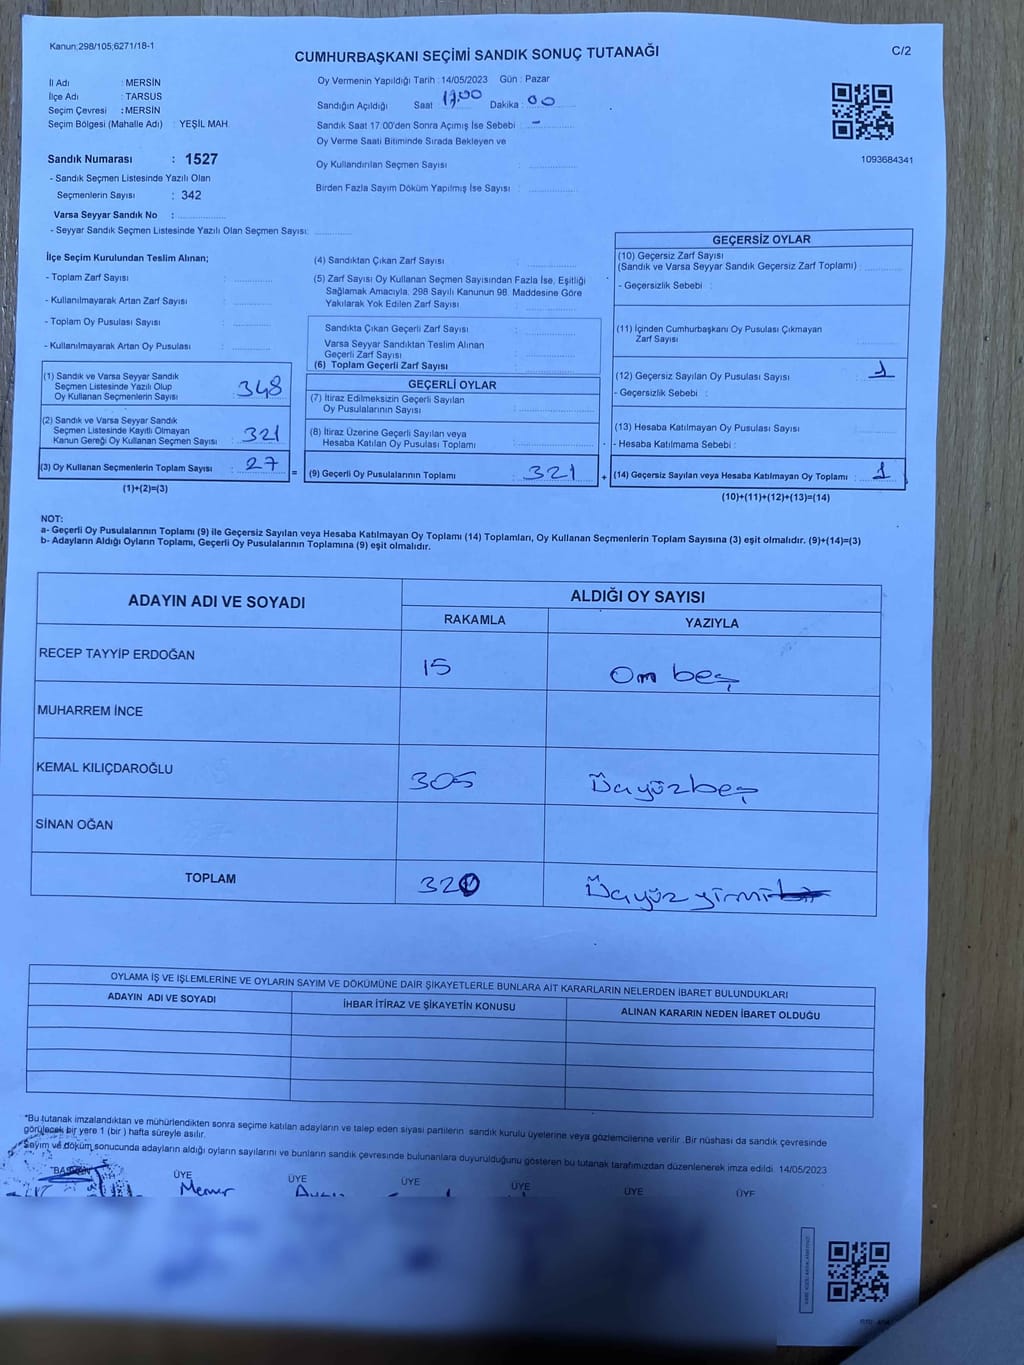 Kanun;298/105;6271/18-1
CUMHURBAŞKANI SEÇİMİ SANDIK SONUÇ TUTANAĞI
C/2
İl Adı : MERSİN
İlçe Adı : TARSUS
Seçim Çevresi : MERSİN
Seçim Bölgesi (Mahalle Adı) : YEŞİL MAH.
Oy Vermenin Yapıldığı Tarih :14/05/2023 Gün : Pazar
Sandığın Açıldığı Saat 17.00 Dakika : 00
Sandık Saat 17:00'den Sonra Açımış İse Sebebi : -
Oy Verme Saati Bitiminde Sırada Bekleyen ve
Oy Kullandırılan Seçmen Sayısı :
Birden Fazla Sayım Döküm Yapılmış İse Sayısı :
1093684341
Sandık Numarası : 1527
- Sandık Seçmen Listesinde Yazılı Olan
Seçmenlerin Sayısı : 342
Varsa Seyyar Sandık No :
- Seyyar Sandık Seçmen Listesinde Yazılı Olan Seçmen Sayısı:
İlçe Seçim Kurulundan Teslim Alınan;
- Toplam Zarf Sayısı :
- Kullanılmayarak Artan Zarf Sayısı :
- Toplam Oy Pusulası Sayısı :
- Kullanılmayarak Artan Oy Pusulası :
(1) Sandık ve Varsa Seyyar Sandık
Seçmen Listesinde Yazılı Olup
Oy Kullanan Seçmenlerin Sayısı : 348
(2) Sandık ve Varsa Seyyar Sandık
Seçmen Listesinde Kayıtlı Olmayan
Kanun Gereği Oy Kullanan Seçmen Sayısı : 321
(3) Oy Kullanan Seçmenlerin Toplam Sayısı : 27 =
(1)+(2)=(3)
(4) Sandıktan Çıkan Zarf Sayısı :
(5) Zarf Sayısı Oy Kullanan Seçmen Sayısından Fazla İse, Eşitliği
Sağlamak Amacıyla, 298 Sayılı Kanunun 98. Maddesine Göre
Yakılarak Yok Edilen Zarf Sayısı :
Sandıkta Çıkan Geçerli Zarf Sayısı :
Varsa Seyyar Sandıktan Teslim Alınan
Geçerli Zarf Sayısı :
(6) Toplam Geçerli Zarf Sayısı :
GEÇERLİ OYLAR
(7) İtiraz Edilmeksizin Geçerli Sayılan
Oy Pusulalarının Sayısı :
(8) İtiraz Üzerine Geçerli Sayılan veya
Hesaba Katılan Oy Pusulası Toplamı :
(9) Geçerli Oy Pusulalarının Toplamı : 321 +
GEÇERSİZ OYLAR
(10) Geçersiz Zarf Sayısı
(Sandık ve Varsa Seyyar Sandık Geçersiz Zarf Toplamı) :
- Geçersizlik Sebebi :
(11) İçinden Cumhurbaşkanı Oy Pusulası Çıkmayan
Zarf Sayısı :
(12) Geçersiz Sayılan Oy Pusulası Sayısı : 1
- Geçersizlik Sebebi :
(13) Hesaba Katılmayan Oy Pusulası Sayısı :
- Hesaba Katılmama Sebebi :
(14) Geçersiz Sayılan veya Hesaba Katılmayan Oy Toplamı : 1
(10)+(11)+(12)+(13)=(14)
NOT:
a- Geçerli Oy Pusulalarının Toplamı (9) ile Geçersiz Sayılan veya Hesaba Katılmayan Oy Toplamı (14) Toplamları, Oy Kullanan Seçmenlerin Toplam Sayısına (3) eşit olmalıdır. (9)+(14)=(3)
b- Adayların Aldığı Oyların Toplamı, Geçerli Oy Pusulalarının Toplamına (9) eşit olmalıdır.
ADAYIN ADI VE SOYADI
ALDIĞI OY SAYISI
RAKAMLA
YAZIYLA
RECEP TAYYİP ERDOĞAN 15 On beş
MUHARREM İNCE
KEMAL KILIÇDAROĞLU 305 Üçyüzbeş
SİNAN OĞAN
TOPLAM 320 Üçyüz yirmi
OYLAMA İŞ VE İŞLEMLERİNE VE OYLARIN SAYIM VE DÖKÜMÜNE DAİR ŞİKAYETLERLE BUNLARA AİT KARARLARIN NELERDEN İBARET BULUNDUKLARI
ADAYIN ADI VE SOYADI
İHBAR İTİRAZ VE ŞİKAYETİN KONUSU
ALINAN KARARIN NEDEN İBARET OLDUĞU
*Bu tutanak imzalandıktan ve mühürlendikten sonra seçime katılan adayların ve talep eden siyasi partilerin sandık kurulu üyelerine veya gözlemcilerine verilir .Bir nüshası da sandık çevresinde
görülecek bir yere 1 (bir ) hafta süreyle asılır.
Sayım ve döküm sonucunda adayların aldığı oyların sayılarını ve bunların sandık çevresinde bulunanlara duyurulduğunu gösteren bu tutanak tarafımızdan düzenlenerek imza edildi. 14/05/2023
BAŞKAN ÜYE ÜYE ÜYE ÜYE ÜYE ÜYE
Memur